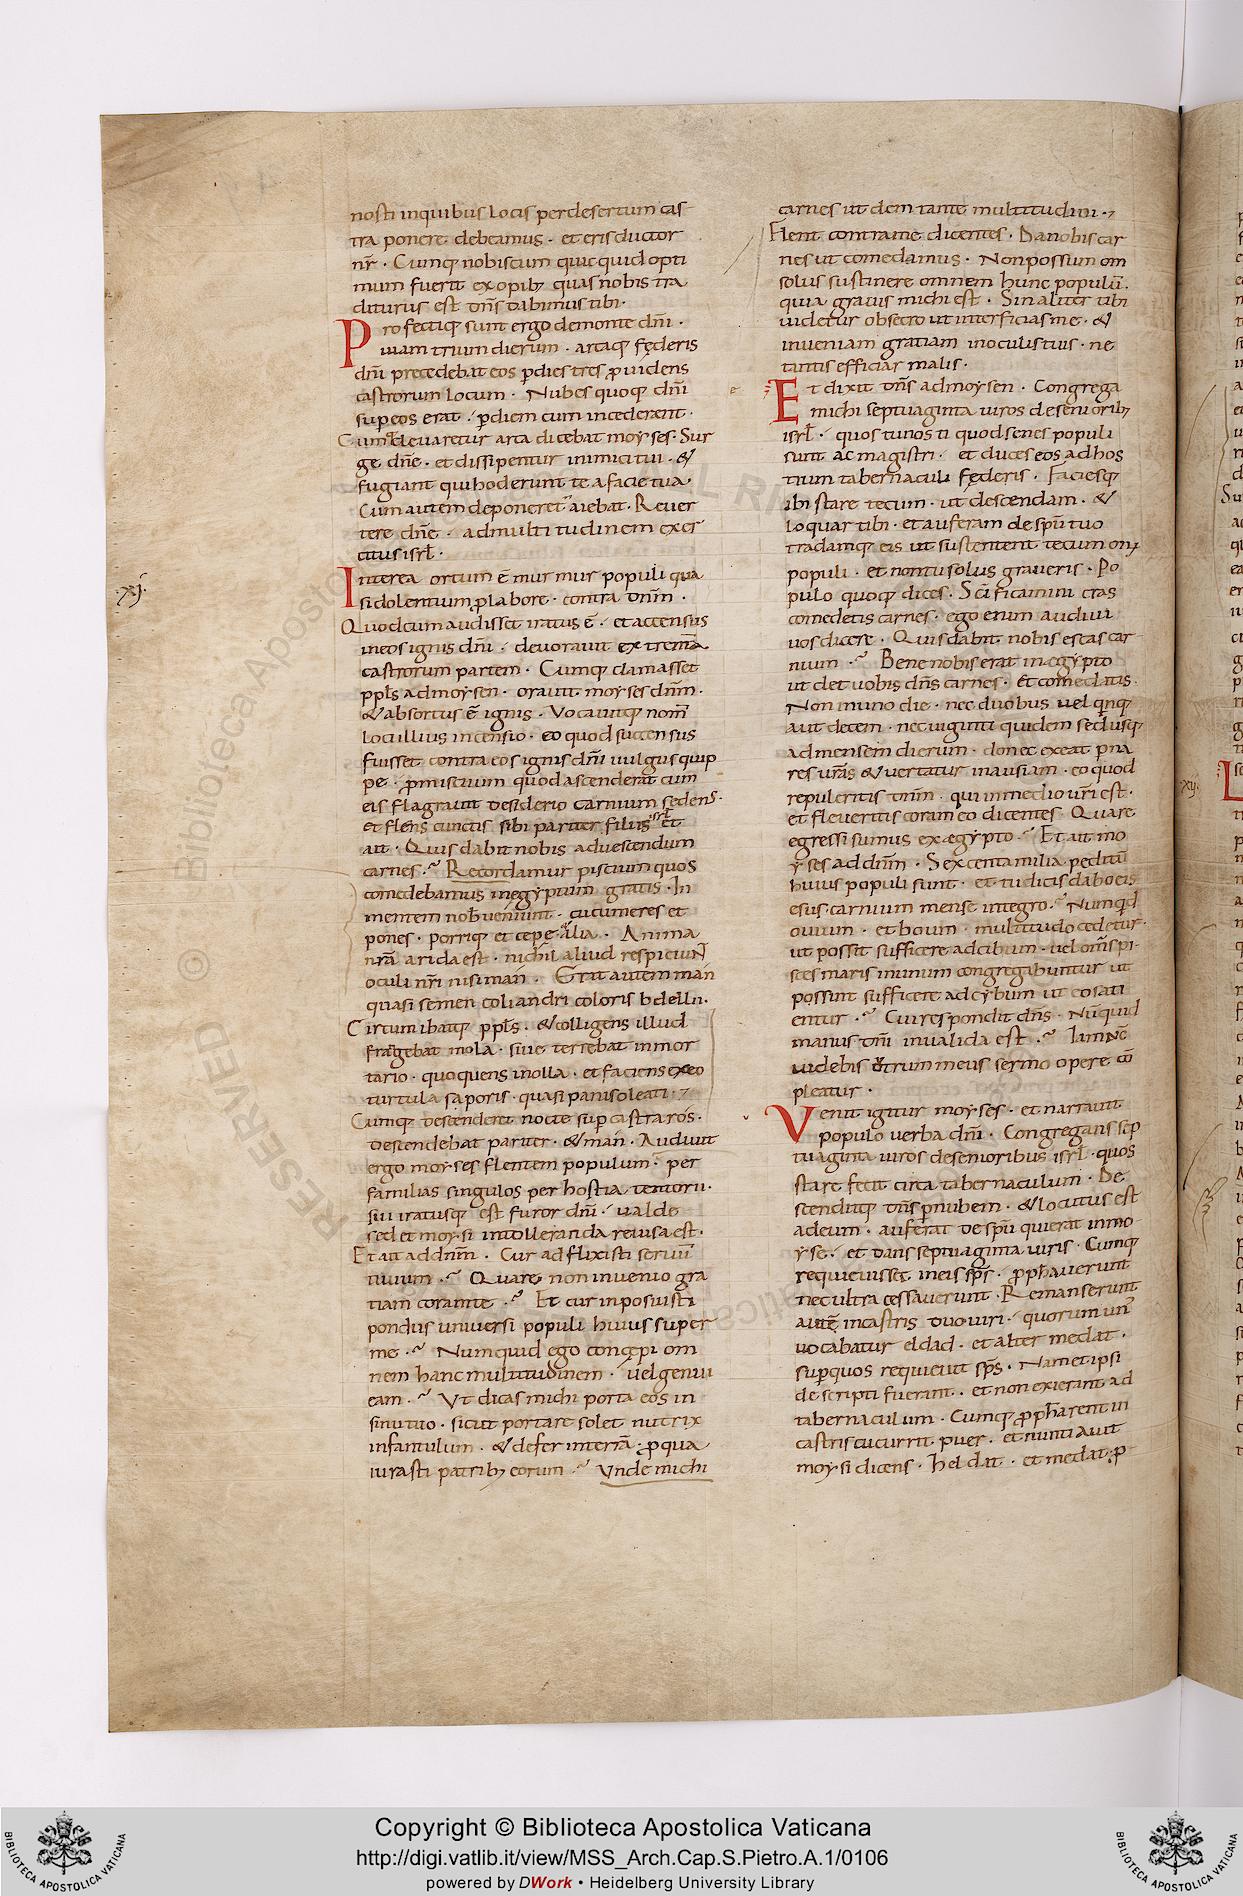 nosti inquibus locis perdesertum cas
tra ponere debeamus · et eris ductor
nr̄ · Cumq; nobiscum quicquid opti
mum fuerit ex opib; quas nobis tra
diturus est dn̄s dabimus tibi ·
Profectiq; sunt ergo demonte dn̄i ·
uiam trium dierum · arcaq; fęderis
dn̄i precedebat eos ꝑdies tres ꝓuidens
castrorum locum · Nubes quoq; dn̄i
suꝑeos erat · ꝑdiem cum incederent ·
Cumq; eleuaretur arca dicebat moyses · Sur
ge dn̄e · et dissipentur inimici tui · &
fugiant qui hoderunt te afacie tua ·
Cum autem deponeret aiebat · Reuer
tere dn̄e · admultitudinem exer
citus isrl̄ ·
xj ·
Interea ortum ē murmur populi qua
si dolentium ꝓlabore · contra dn̄m ·
Quod cum audisset iratus ē · et accensus
ineos ignis dn̄i · deuorauit extremā
castrorum partem · Cumq; clamasset
ppl̄s admoysen · orauit moyses dn̄m ·
& absortus ē ignis · Vocauitq; nom̄
loci illius incensio · eo quod succensus
fuisset contra eos ignis dn̄i uulgus quip
pe · ꝓmiscuum quod ascenderat cum
eis flagrauit desiderio carnium sedens ·
et flens cunctis sibi pariter filiis isrl̄ et
ait · Quis dabit nobis aduescendum
carnes · Recordamur piscium quos
comedebamus inegyptum gratis · In
mentem nob ueniunt · cucumeres et
pones · porriq; et cepe · & alia · Anima
nr̄a arida est · nichil aliud respiciunt
oculi nr̄i nisi man · Erat autem man
quasi semen coliandri coloris bdellii ·
Circumibatq; ppl̄s · & colligens illud
frangebat mola · siue terrebat inmor
tario · quoquens inolla · et faciens exeo
turtula saporis · quasi panis oleati ·
Cumq; descenderet nocte suꝑ castra ros ·
descendebat pariter · & man · Audiuit
ergo moyses flentem populum · per
familias singulos per hostia tentorii ·
sui iratusq; est furor dn̄i · ualde
sed et moysi intolleranda reuisa est ·
Et ait addn̄m · Cur adflixisti seruū
tuum · Quare non inuenio gra
tiam corante · Et cur inposuisti
pondus uniuersi populi huius super
me · Numquid ego concępi om
nem hanc multitudinem · uel genui
eam · Vt dicas michi porta eos in
sinu tuo · sicut portare solet nutrix
infantulum · & defer interrā · ꝓqua
iurasti patrib; eorum · Vnde michi
carnes ut dem tante multitudini ·
Flent contra me dicentes · Da nobis car
nes ut comedamus · Non possum om
solus sustinere omnem hunc populū ·
quia grauis michi est · Sin aliter tibi
uidetur obsecro ut interficias me · &
inueniam gratiam inoculis tuis · ne
tantis efficiar malis ·
Et dixit dn̄s admoysen · Congrega
michi septuaginta uiros deseniorib;
isrl̄ · quos tu nosti quod senes populi
sunt ac magistri · et duces eos ad hos
tium tabernaculi fęderis · Faciesq;
ibi stare tecum · ut descendam · &
loquar tibi · et auferam de spū tuo
tradamq; eis ut sustentent tecum on
populi · et non tu solus graueris · Po
pulo quoq; dices · Sc̄ificamini cras
comedetis carnes · ego enim audiui
uos dicere · Quis dabit nobis escas car
nium · Bene nobis erat in egypto
ut det uobis dn̄s carnes · Et comedatis ·
Non in uno die · nec duobus uel q̄nq;
aut decem · nec uiginti quidem sed usq;
admensem dierum · donec exeat ꝑ na
res ur̄as & uertatur inausiam · eo quod
repuleritis dn̄m · qui inmedio ur̄i est ·
et fleueritis coram eo dicentes · Quare
egressi sumus ex egypto · Et ait mo
yses addn̄m · Sexcenta milia peditū
huius populi sunt · et tu dicis dabo eis
esus carnium mense integro · Numqd
ouium · et boum · multitudo cedetur ·
ut possit sufficere adcibum · uel om̄s pi
sces maris inunum congregabuntur ut
possint sufficere adcybum ut eos ati
entur · Cui respondit dn̄s · Nūquid
manus dn̄i inualida est · Iam nc̄
uidebis utrum meus sermo opere cō
pleatur ·
Venit igitur moyses · et narrauit
populo uerba dn̄i · Congregans sep
tuaginta uiros desenioribus isrl̄ · quos
stare fecit circa tabernaculum · De
scenditq; dn̄s ꝑ nubem · & locutus est
adeum · auferat de spū qui erat inmo
yse · et dans septuaginta uiris · Cumq;
requieuisset ineis sp̄s · ꝓph̄auerunt
nec ultra cessauerunt · Remanserunt
autē incastris duo uiri · quorum un'
uocabatur eldad · et alter medat ·
suꝑquos requieuit sp̄s · Nam et ipsi
descripti fuerant · et non exierant ad
tabernaculum · Cumq; ꝓph̄arent in
castris cucurrit puer · et nuntiauit
moysi dicens · heldat · et medat · ꝓ
xij ·
Copyright © Biblioteca Apostolica Vaticana
http://digi.vatlib.it/view/MSS_Arch.Cap.S.Pietro.A.1/0106
powered by DWork • Heidelberg University Library
BIBLIOTECA APOSTOLICA VATICANA
BIBLIOTECA APOSTOLICA VATICANA